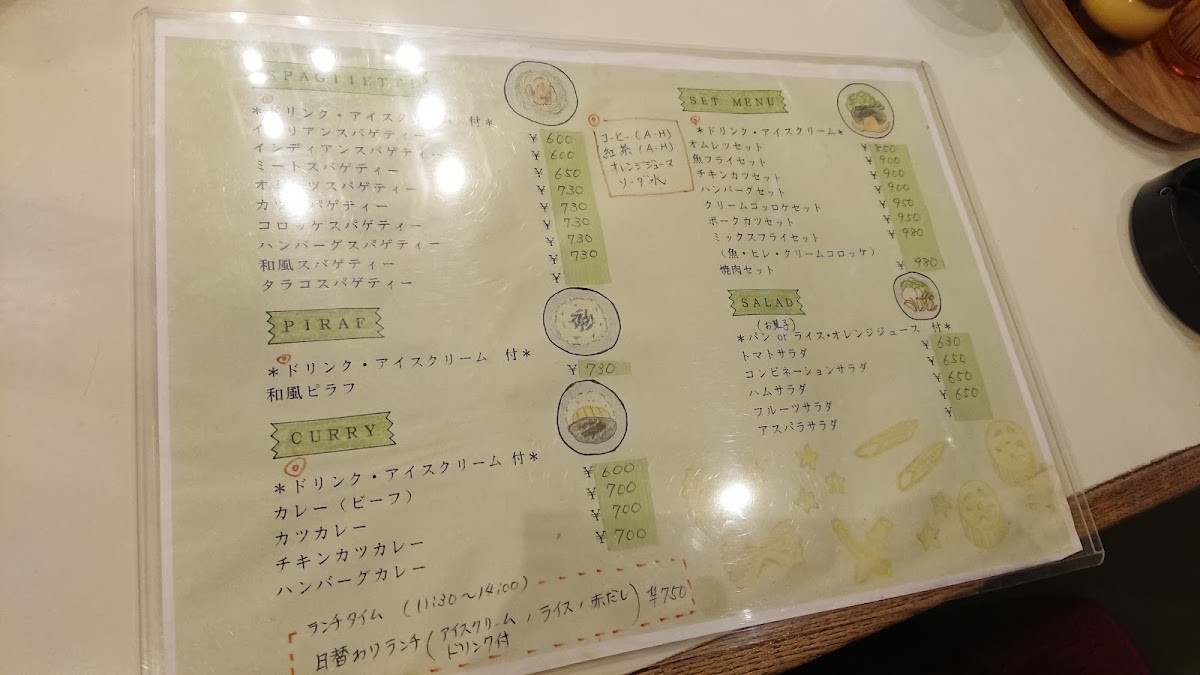 SPAGHETTI
*ドリンク・アイスクリーム 付*
イタリアンスパゲティー
インディアンスパゲティー
ミートスパゲティー
オムレツスパゲティー
カツスパゲティー
コロッケスパゲティー
ハンバーグスパゲティー
和風スパゲティー
タラコスパゲティー
¥600
¥600
¥650
¥730
¥730
¥730
¥730
¥730
¥
PIRAF
*ドリンク・アイスクリーム 付*
和風ピラフ
¥730
CURRY
*ドリンク・アイスクリーム 付*
カレー(ビーフ)
カツカレー
チキンカツカレー
ハンバーグカレー
¥600
¥700
¥700
¥700
ランチタイム (11:30〜14:00)
日替わりランチ(アイスクリーム、ライス、赤だし)¥750
ドリンク付
コーヒー(A・H)
紅茶(A・H)
オレンジジュース
ソーダ水
SET MENU
*ドリンク・アイスクリーム*
オムレツセット
魚フライセット
チキンカツセット
ハンバーグセット
クリームコッロケセット
ポークカツセット
ミックスフライセット
(魚・ヒレ・クリームコロッケ)
焼肉セット
¥850
¥900
¥900
¥900
¥950
¥950
¥980
¥980
SALAD
(お菓子)
*パン or ライス・オレンジジュース 付*
トマトサラダ
コンビネーションサラダ
ハムサラダ
フルーツサラダ
アスパラサラダ
¥630
¥650
¥650
¥650
¥